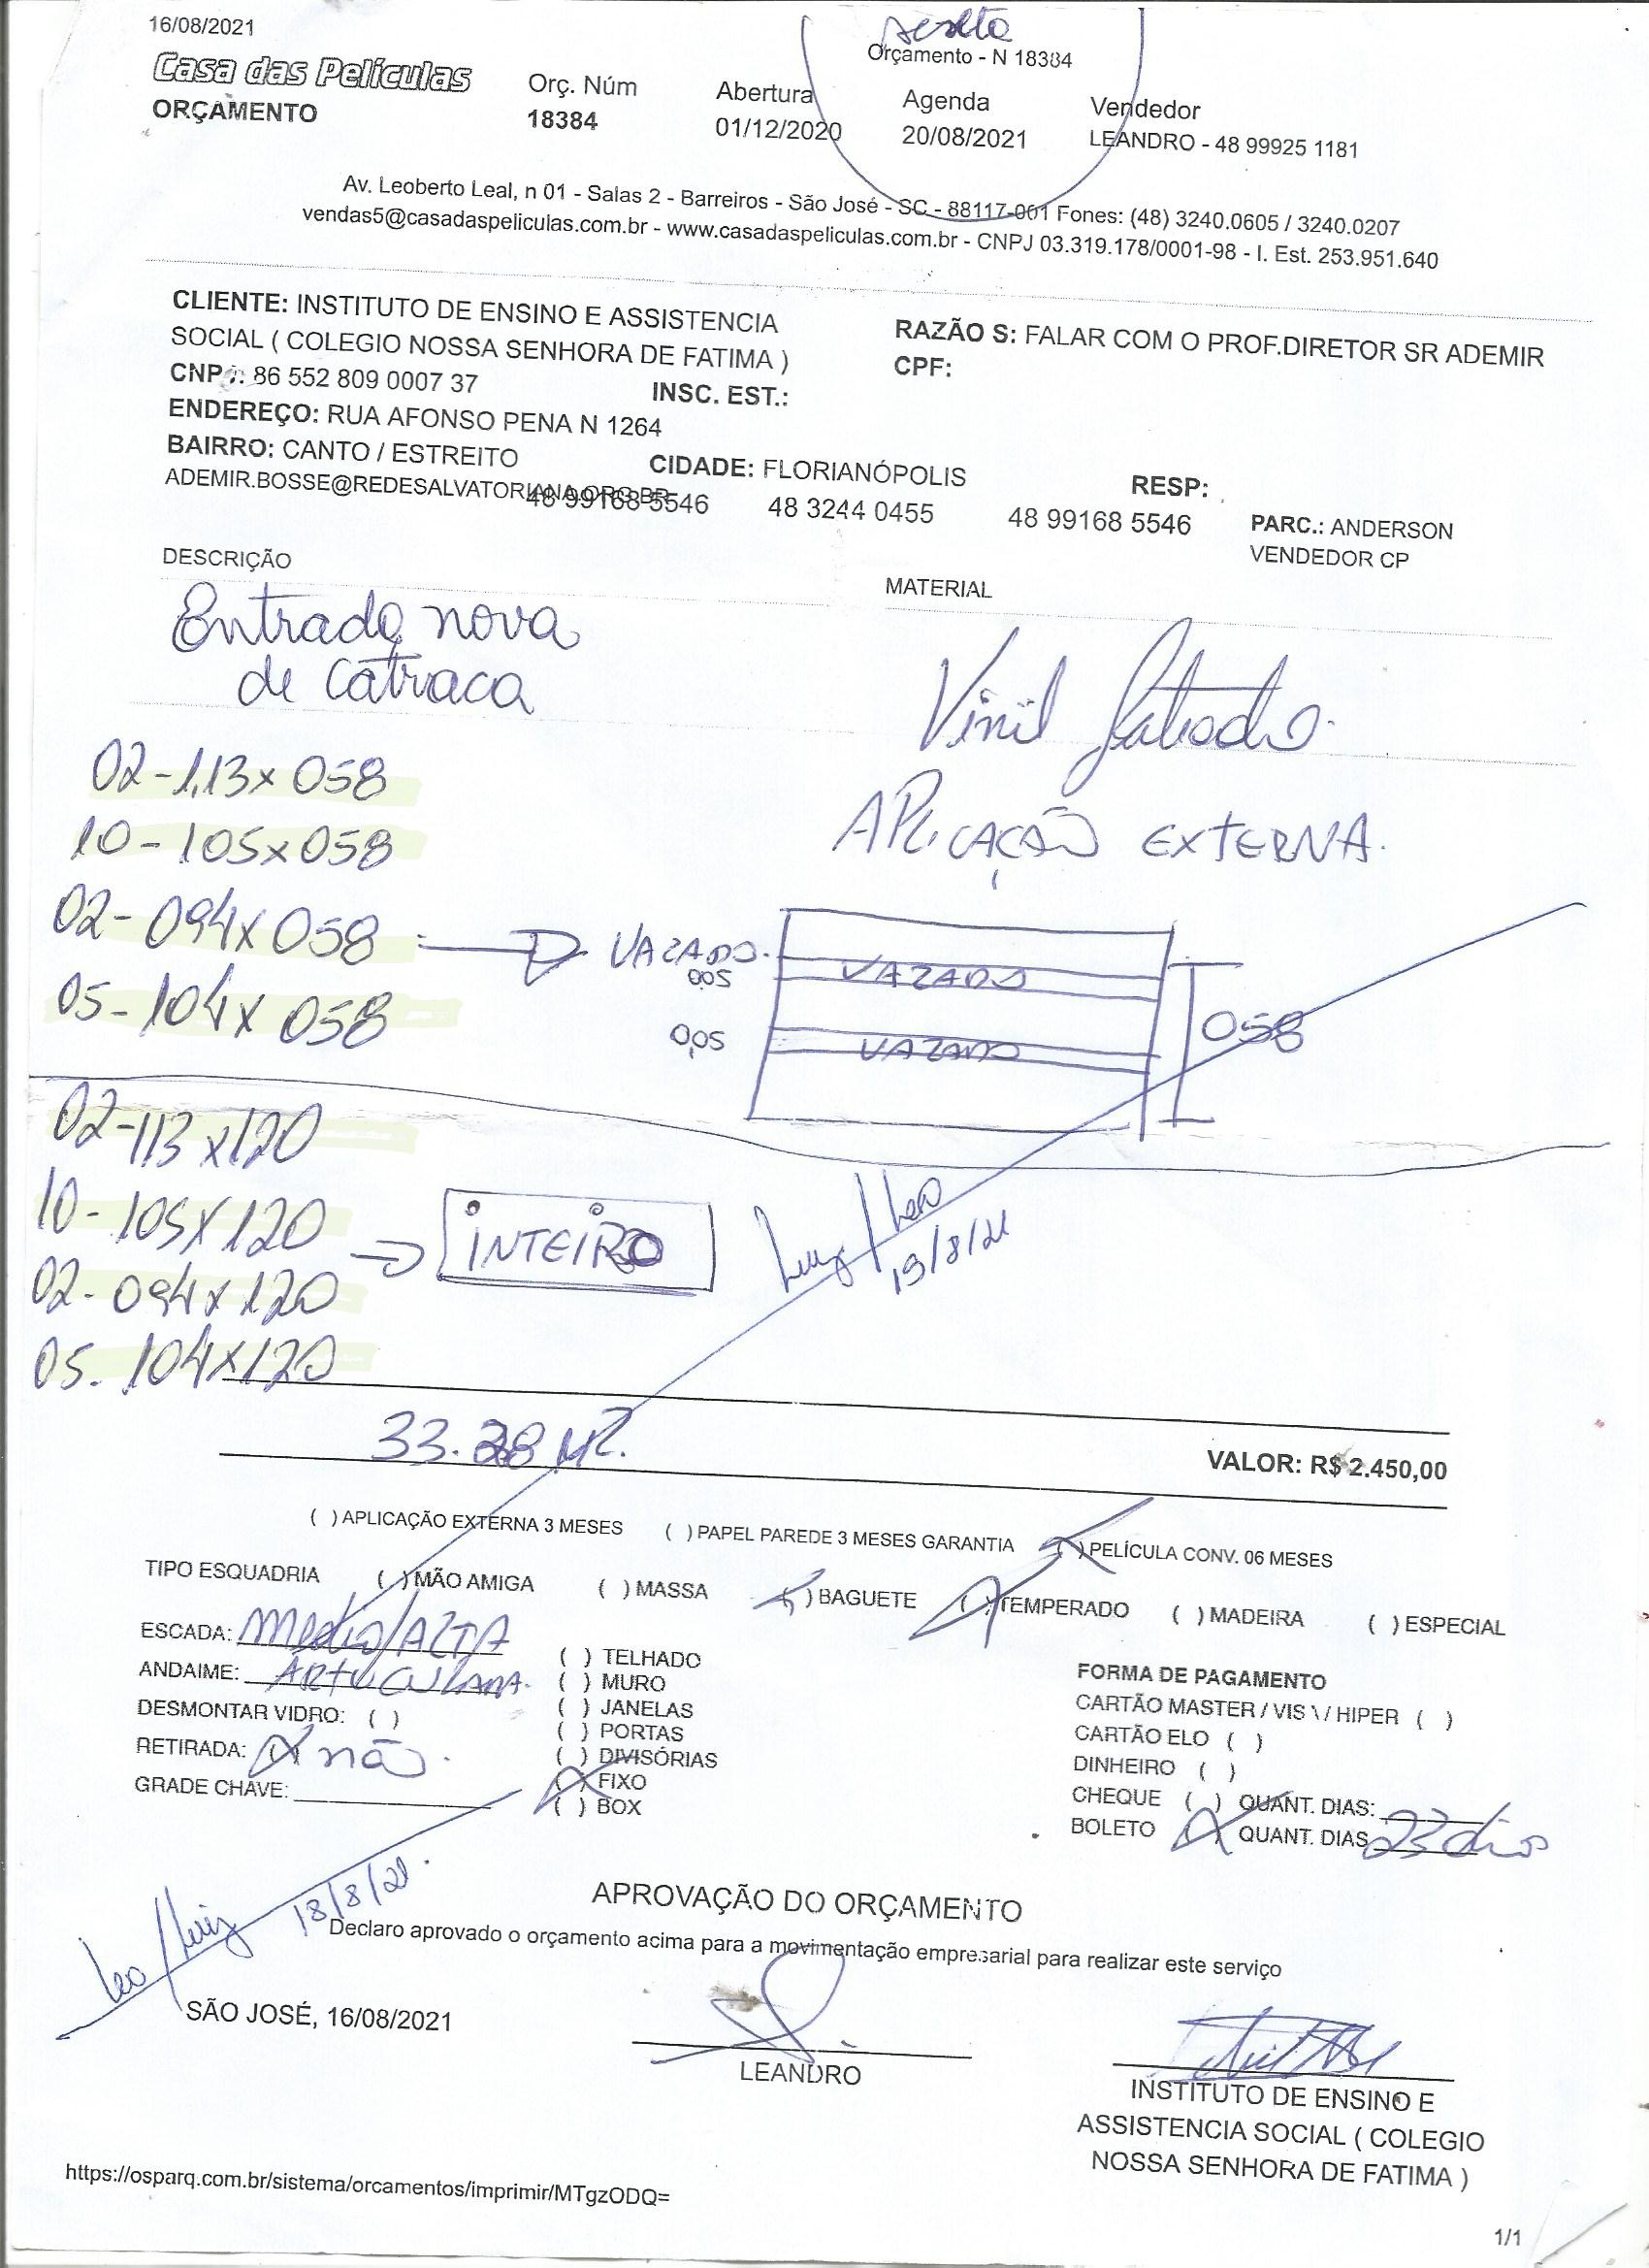 16/08/2021
sexta
Orçamento - N 18384
Casa das Películas
ORÇAMENTO
Orç. Núm
18384
Abertura
01/12/2020
Agenda
20/08/2021
Vendedor
LEANDRO - 48 99925 1181
Av. Leoberto Leal, n 01 - Salas 2 - Barreiros - São José - SC - 88117-001 Fones: (48) 3240.0605 / 3240.0207
vendas5@casadaspeliculas.com.br - www.casadaspeliculas.com.br - CNPJ 03.319.178/0001-98 - I. Est. 253.951.640
CLIENTE: INSTITUTO DE ENSINO E ASSISTENCIA
SOCIAL ( COLEGIO NOSSA SENHORA DE FATIMA )
RAZÃO S: FALAR COM O PROF.DIRETOR SR ADEMIR
CNPJ: 86 552 809 0007 37
INSC. EST.:
CPF:
ENDEREÇO: RUA AFONSO PENA N 1264
BAIRRO: CANTO / ESTREITO
CIDADE: FLORIANÓPOLIS
RESP:
ADEMIR.BOSSE@REDESALVATORIANA.ORG.BR
48 99168 5546
48 3244 0455
48 99168 5546
PARC.: ANDERSON
VENDEDOR CP
DESCRIÇÃO
MATERIAL
Entrada nova
de Catraca
Vinil Jateado.
APLICAÇÃO EXTERNA.
02-1,13x058
10-105x058
02-094x058
05-104x058
VAZADO.
VAZADO
005
0,05
VAZADO
058
02-113x120
10-105x120
02-094x120
05-104x120
INTEIRO
Luiz/Leo
19/8/21
33.28 M2.
VALOR: R$ 2.450,00
( ) APLICAÇÃO EXTERNA 3 MESES ( ) PAPEL PAREDE 3 MESES GARANTIA (X) PELÍCULA CONV. 06 MESES
TIPO ESQUADRIA ( ) MÃO AMIGA ( ) MASSA (X) BAGUETE (X) TEMPERADO ( ) MADEIRA ( ) ESPECIAL
ESCADA: Media/ALTA
ANDAIME: ARTICULADA.
DESMONTAR VIDRO: ( )
RETIRADA: (X) não.
GRADE CHAVE:
( ) TELHADO
( ) MURO
( ) JANELAS
( ) PORTAS
( ) DIVISÓRIAS
(X) FIXO
( ) BOX
FORMA DE PAGAMENTO
CARTÃO MASTER / VIS \ / HIPER ( )
CARTÃO ELO ( )
DINHEIRO ( )
CHEQUE ( ) QUANT. DIAS:
BOLETO (X) QUANT. DIAS 23 dias
Leo/Luiz 18/8/21.
APROVAÇÃO DO ORÇAMENTO
Declaro aprovado o orçamento acima para a movimentação empresarial para realizar este serviço
SÃO JOSÉ, 16/08/2021
LEANDRO
INSTITUTO DE ENSINO E
ASSISTENCIA SOCIAL ( COLEGIO
NOSSA SENHORA DE FATIMA )
https://osparq.com.br/sistema/orcamentos/imprimir/MTgzODQ=
1/1